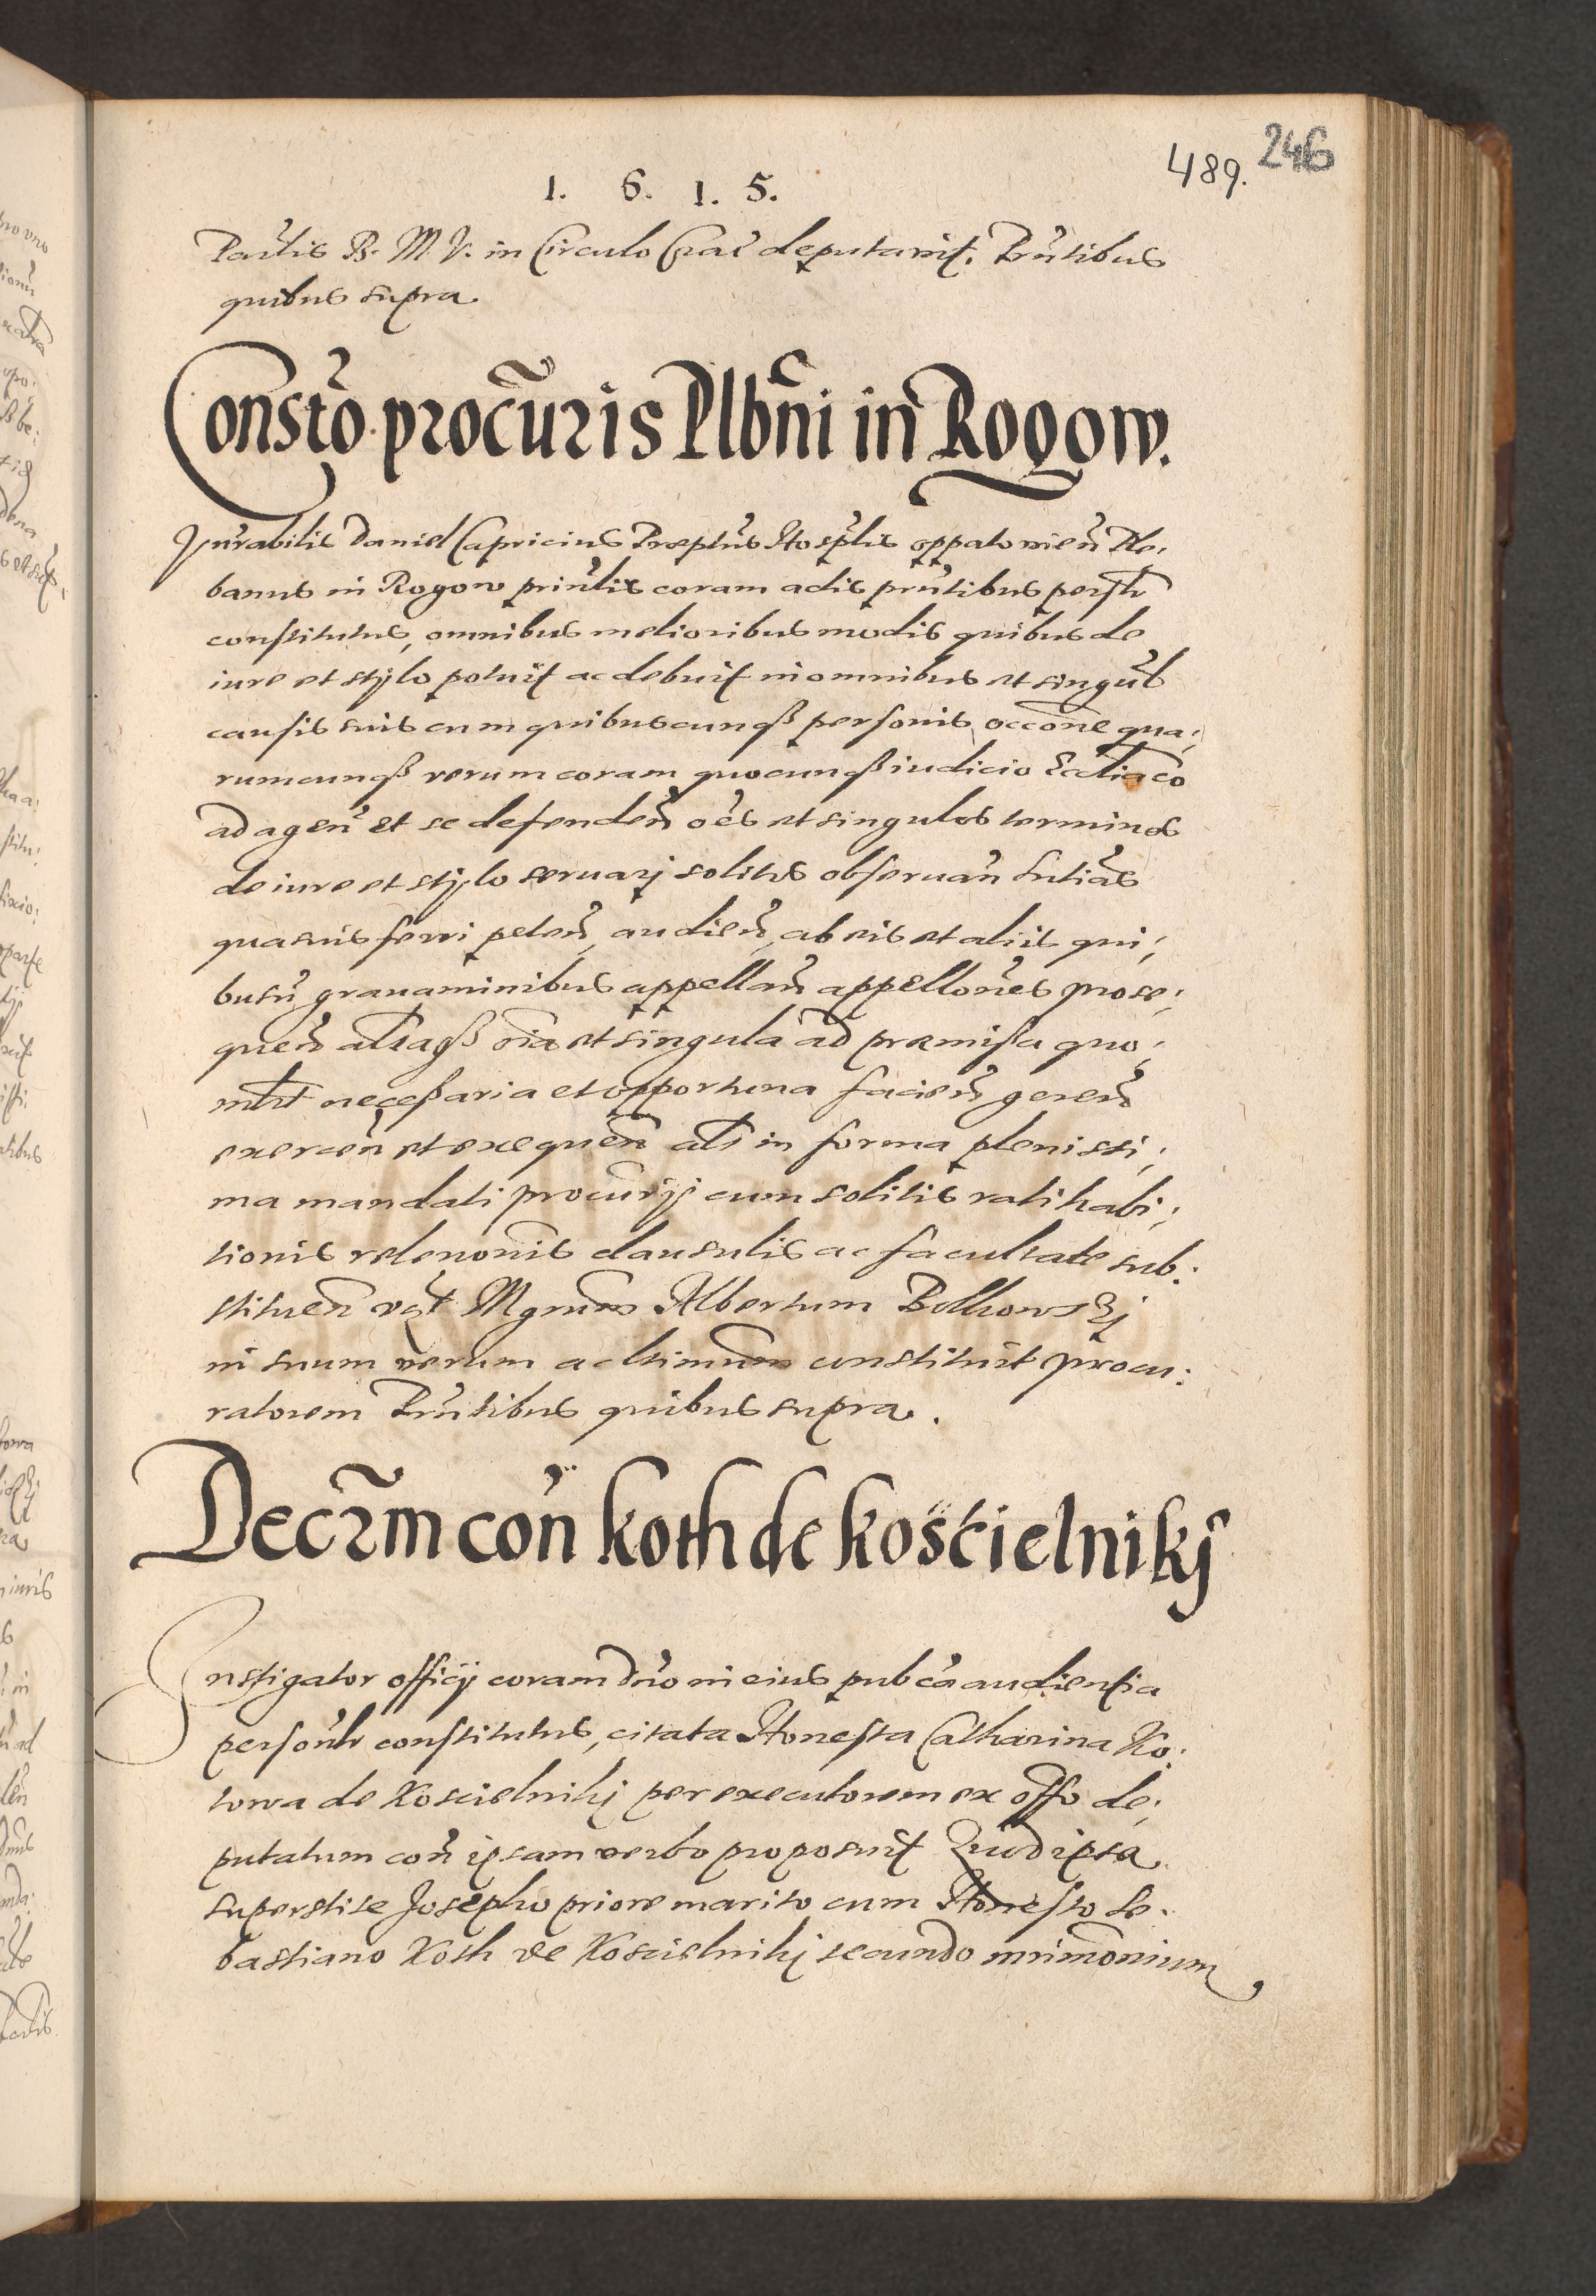 246
489.
1. 6. 1. 5.
Parlis B. M. V. in Circulo Crac deputavit. Prntibus
quibus supra.
Consto procuris Plbni in Rogow.
Vnrabilis Daniel Capricius Praeptus Hosplis oppatovien Ple:
banus in Rogow prinlir coram actis prntibus perslr
constitutus, omnibus melioribus modis quibus de
iure et stylo potuit ac debuit in omnibus et singul
causis suis cum quibuscunqß personis occone qua:
rumcunqß rerum coram quocunqß iudicio Eccliaco
ad agen et se defenden oes et singulos terminos
de iure et stylo seruarj solitos obseruan sntias
quasuis ferri peten, audien, ab eis et aliis qui:
busu grauaminibus appellan appellones prose:
quen aliaqß oia et singula ad praemissa quo:
mlt necessaria et opportuna facien geren
exercen et exequen als in forma plenissi:
ma mandati procurij cum solitis ratihabi:
tionis releuonis clausulis ac facultate sub:
stituen vgt Mgrum Albertum Bolkowskj
in suum verum ac ltimum constituit procu:
ratorem Prntibus quibus supra.
Decrm con koth de kościelnikj
Instigator officij coram dno in eius pubca audientia
personlr constitutus, citata Honesta Catharina Ko:
towa de Koscielnikj per executorem ex offo de:
putatum con ipsam verbo proposuit Quod ipsa
superstite Josepho priore marito cum Honesto Se:
bastiano Koth de Koscielnikj secundo mrimonium